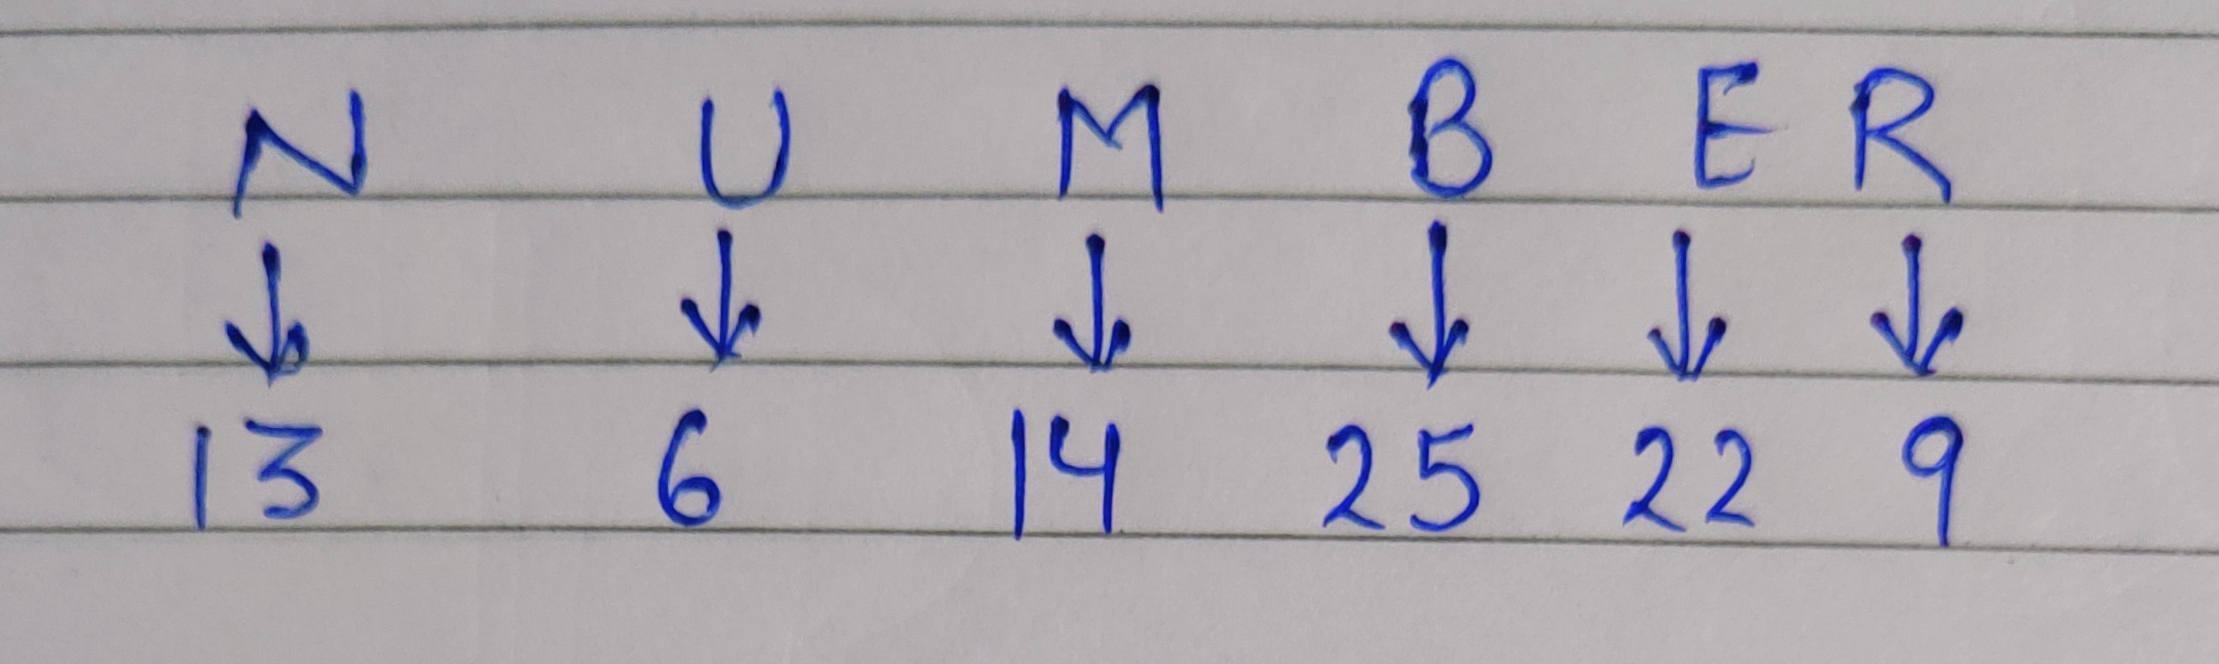 N U M B E R
↓ ↓ ↓ ↓ ↓ ↓
13 6 14 25 22 9